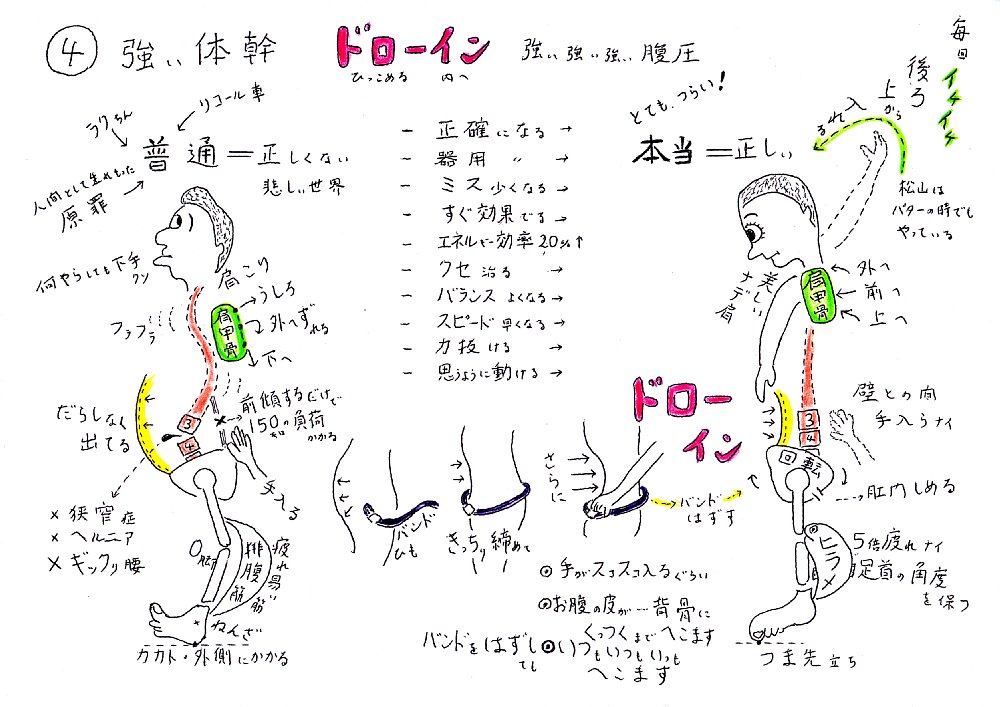 ④ 強い体幹
ドローイン
ひっこめる 内へ
強い強い強い腹圧
毎回
イチイチ
後ろ
上から
入れる
松山は
パターの時でも
やっている
とても、つらい!
本当=正しい
ラクちん
リコール車
普通=正しくない
悲しい世界
人間として生れもった
原罪
何やらしても下手
クソ
フラフラ
肩こり
肩甲骨
うしろ
外へずれる
下へ
だらしなく
出てる
3
4
前傾するだけで
150キロの負荷
かかる
× 狭窄症
× ヘルニア
× ギックリ腰
O脚
排腹筋
疲れ易い筋
ねんざ
カカト・外側にかかる
- 正確になる →
- 器用 〃 →
- ミス少くなる →
- すぐ効果でる →
- エネルギー効率20%↑
- クセ治る →
- バランスよくなる →
- スピード早くなる →
- 力抜ける →
- 思うように動ける →
ドローイン
バンド
ひも
きっちり締めて
さらに
バンド
はずす
◎手がスコスコ入るぐらい
◎お腹の皮が…背骨に
くっつくまでへこます
バンドをはずしても
◎いつもいつもいつも
へこます
美しい
ナデ肩
肩甲骨
外へ
前へ
上へ
壁との間
手入らナイ
3
4
回転
肛門しめる
ヒラメ
5倍疲れナイ
足首の角度
を保つ
つま先立ち